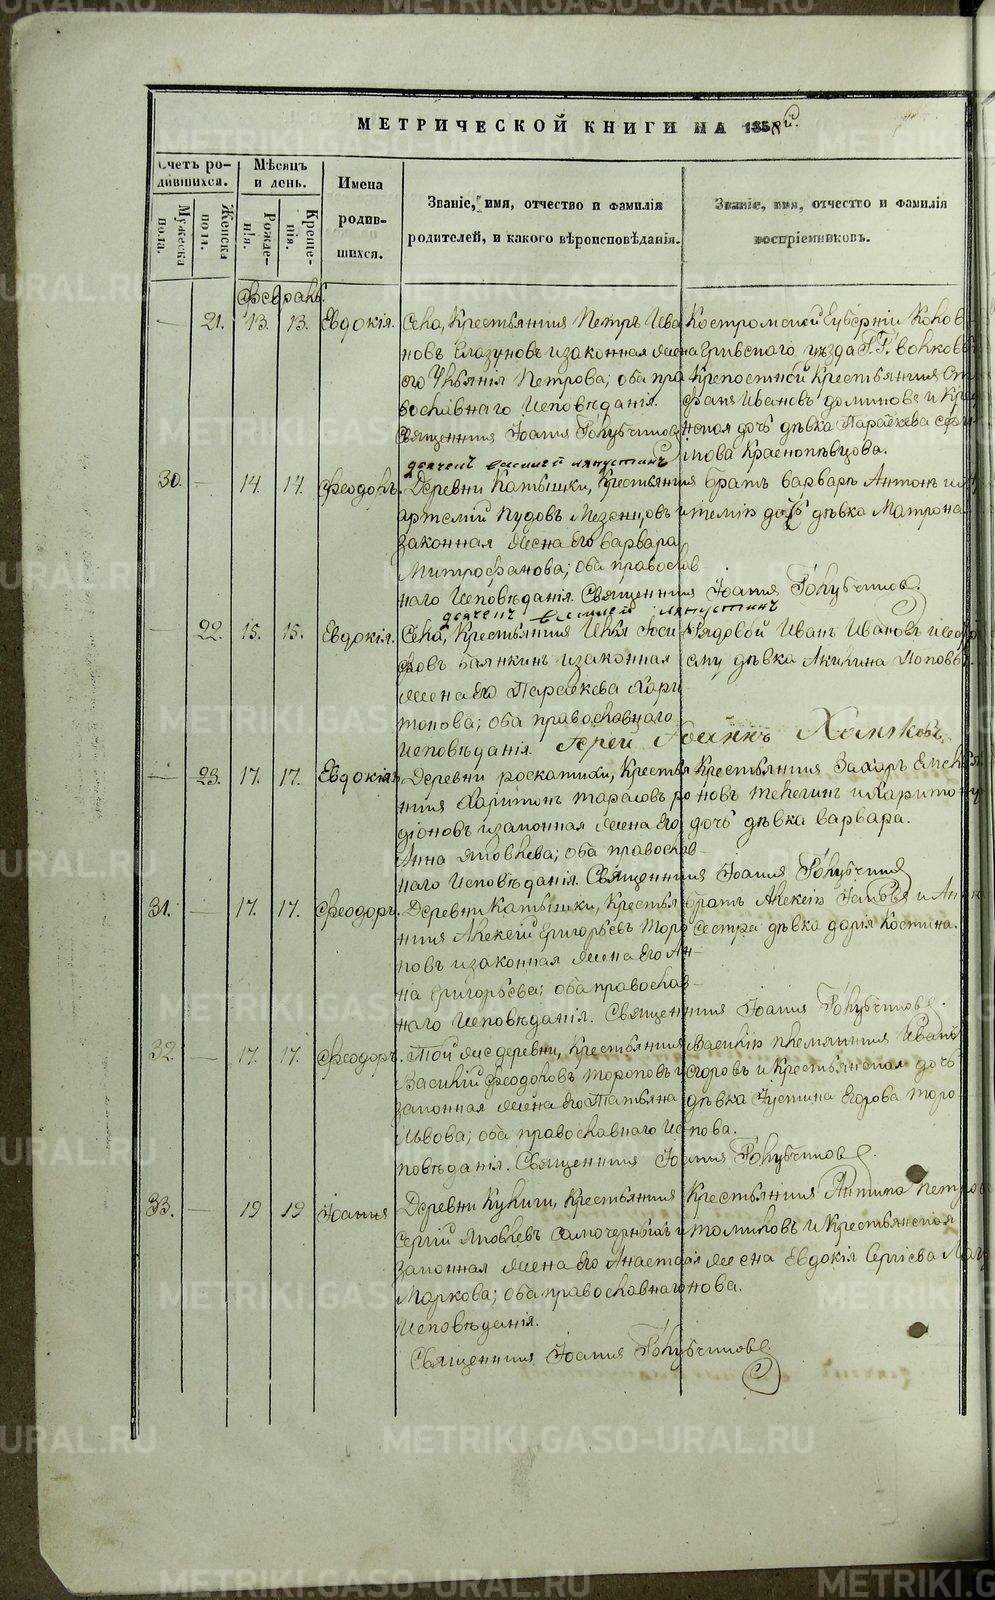 МЕТРИЧЕСКОЙ КНИГИ НА 1858й.
Счетъ ро-
дившихся.
Мѣсяцъ
и день.
Имена
родив-
шихся.
Званіе, имя, отчество и фамилія
родителей, и какого вѣроисповѣданія.
Званіе, имя, отчество и фамилія
воспріемниковъ.
Мужеска
пола.
Женска
пола.
Рожде-
нія.
Креще-
нія.
Февраль.
21. 13. 13. Евдокія.
Села, Крестьянинъ Петръ Ива
новъ Глазуновъ и законная жена
его Ульянія Петрова; оба пра
вославнаго Исповѣданія.
Священникъ Іоаннъ Голубчиковъ
Костромской Губерніи
уѣзда
крепостной Крестьянинъ
Ивановъ
дочь дѣвка Параскева
дьяченъ василей ляпустинъ
30. 14. 14. Феодоръ.
Деревни Катышки, Крестьянинъ
Артемій Кудовъ Мезенцовъ и
законная жена Его Варвара
Митрофанова; оба православ
наго Исповѣданія. Священникъ Іоаннъ Голубчиковъ.
братъ Варвары Антонъ
дочь дѣвка Матрона
дьяченъ василей ляпустинъ
22. 15. 15. Евдокія.
Села, Крестьянинъ Илья Іоси
фовъ Балякинъ и законная
жена Его Параскева Хари
тонова; оба православнаго
Исповѣданія. Іерей Іоаннъ Хомяковъ
Рядовой Иванъ Ивановъ
дѣвка Акилина Попова.
23. 17. 17. Евдокія.
Деревни роскатихи, Крестья
нинъ Харитонъ Тарасовъ ро
діоновъ и законная жена Его
Анна Яковлева; оба православ-
наго Исповѣданія. Священникъ Іоаннъ Голубчиковъ
Крестьянинъ Захаръ Емелья
новъ Телегинъ и Харитона
дочь дѣвка Варвара.
31. 17. 17. Феодоръ.
Деревни Катышки, Крестья
нинъ Алексій Григорьевъ Торо
повъ и законная жена Его Ан-
на Григорьева; оба православ-
наго Исповѣданія. Священникъ Іоаннъ Голубчиковъ.
братъ Алексія Іаковъ и Анны
сестра дѣвка Дарія Костина.
32. 17. 17. Феодоръ.
Той же деревни, Крестьянинъ
Василій Феодоровъ Тороповъ и
законная жена Его Татьяна
Львова; оба православнаго Ис
повѣданія. Священникъ Іоаннъ Голубчиковъ.
Василія племянникъ Иванъ
Егоровъ и Крестьянская дочь
дѣвка Іустина Егорова Торо
пова.
33. 19 19 Іоаннъ
Деревни Кулиги, Крестьянинъ
Сергій Яковлевъ Самочерныхъ и
законная жена Его Анастасія
Маркова; оба православнаго
Исповѣданія.
Священникъ Іоаннъ Голубчиковъ.
Крестьянинъ Антипа Петровъ
и Крестьянская
жена Евдокія Сергіева
нова.
METRIKI.GASO-URAL.RU